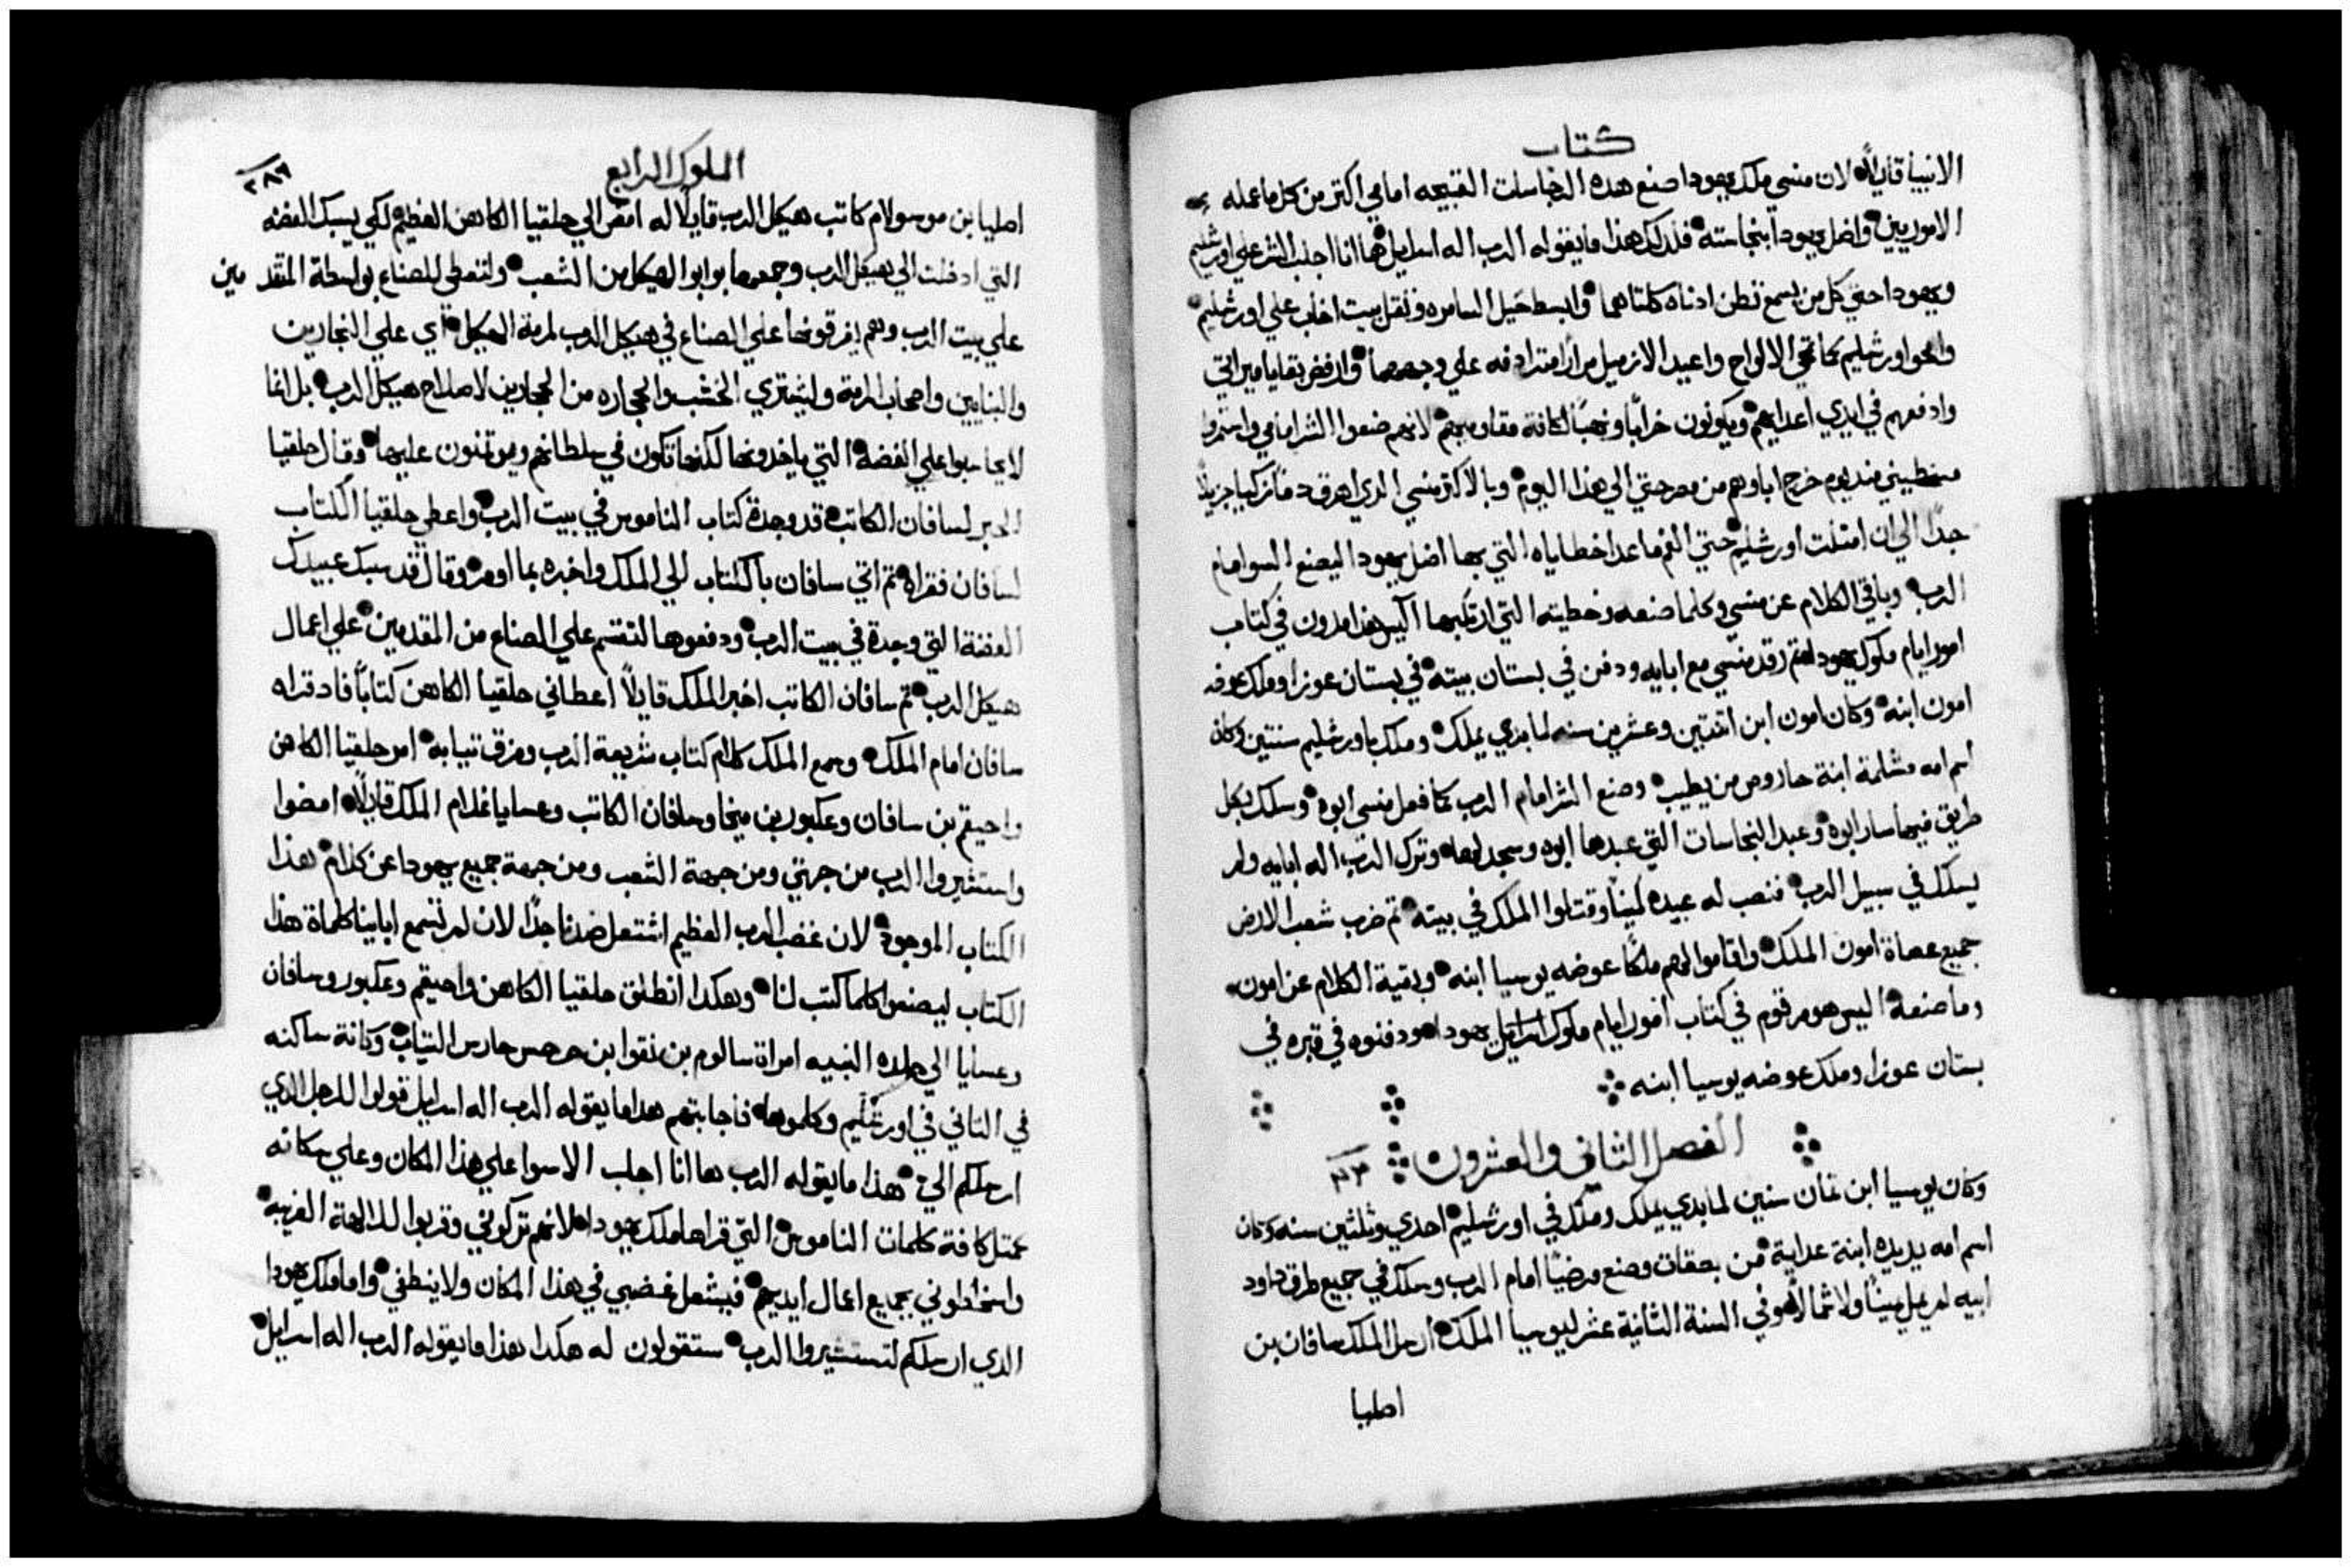 كتاب
الانبيا قايلاً لان منسي ملك يهودا صنع هذه النجاسات القبيحه امامي اكتر من كل ما عمله
الاموريين واضل يهودا بنجاسته فلدلك هذا ما يقوله الرب اله اسرايل ها انا اجلب الشر علي اورشليم
ويهودا حتي كل من يسمع تطن ادناه كلتاهما وابسط حبل السامره وثقل بيت اخاب علي اورشليم
وامحو اورشليم كما تمحي الالواح واعيد الازميل مراراً مترادفه علي وجهها وارفض بقايا ميراتي
وادفعهم في ايدي اعدايهم ويكونون خراباً ونهباً لكافة مقاوميهم لانهم صنعوا الشر امامي واستمروا
مسخطيني مند يوم خرج اباوهم من مصر حتي الي هذا اليوم وبالاكتر منسي الدي اهرق دماً زكيا جزيلاً
جداً الي ان امتلت اورشليم حتي الفم ماعدا خطاياه التي بها اضل يهودا ليصنع السو امام
الرب وباقي الكلام عن منسي وكلما صنعه وخطيته التي ارتكبها اليس هذا مدون في كتاب
امور ايام ملوك يهودا تم رقد منسي مع ابايه ودفن في بستان بيته في بستان عوزا وملك عوضه
امون ابنه وكان امون ابن اتنتين وعشرين سنه لما بدي يملك وملك باورشليم سنتين وكان
اسم امه مشلمة ابنة حاروص من يطيب وصنع الشر امام الرب كما فعل منسي ابوه وسلك بكل
طريق فيها سار ابوه وعبد النجاسات التي عبدها ابوه وسجد لها وترك الرب اله ابايه ولم
يسلك في سبيل الرب فنصب له عبيده كميناً وقتلوا الملك في بيته تم ضرب شعب الارض
جميع عصاة امون الملك واقاموا لهم ملكاً عوضه يوسيا ابنه وبقية الكلام عن امون
وما صنعه اليس هو مرقوم في كتاب امور ايام ملوك يهودا ودفنوه في قبره في
بستان عوزا وملك عوضه يوسيا ابنه
الفصل الثاني والعشرون
وكان يوسيا ابن تمان سنين لما بدي يملك وملك في اورشليم احدي وثلثين سنه وكان
اسم امه يديده ابنة عداية من بصقات وصنع مرضياً امام الرب وسلك في جميع طرق داود
ابيه لم يمل يميناً ولا شمالاً وفي السنة الثانية عشر ليوسيا الملك ارسل الملك سافان بن
اصليا
الملوك الرابع
٢٨٩
اصليا بن موسولام كاتب هيكل الرب قايلاً له امض الي حلقيا الكاهن العظيم لكي يسبك الفضه
التي ادخلت الي هيكل الرب وجمعها بوابو الهيكل من الشعب ولتعطي للصناع بواسطة المقدمين
علي بيت الرب وهم يفرقونها علي الصناع في هيكل الرب لمرمة الهيكل اي علي النجارين
والبنايين واصحاب المرمة وليشتري الخشب والحجاره من الحجارين لاصلاح هيكل الرب بل انما
لا يحاسبوا علي الفضه التي ياخدونها لكنها تكون في سلطانهم وموتمنون عليها وقال حلقيا
الحبر لسافان الكاتب قد وجدة كتاب الناموس في بيت الرب واعطي حلقيا الكتاب
لسافان فقراه تم اتي سافان بالكتاب الي الملك واخبره بما اومر وقال قد سبك عبيدك
الفضة التي وجدة في بيت الرب ودفعوها لتقسم علي الصناع من المقدمين علي اعمال
هيكل الرب تم سافان الكاتب اخبر الملك قايلاً اعطاني حلقيا الكاهن كتاباً فاد قراه
سافان امام الملك وسمع الملك كلام كتاب شريعة الرب ومزق تيابه امر حلقيا الكاهن
واحيقم بن سافان وعكبور بن ميخا وسافان الكاتب وعسايا غلام الملك قايلاً امضوا
واستشيروا الرب من جهتي ومن جهة الشعب ومن جهة جميع يهودا عن كلام هذا
الكتاب الموجود لان غضب الرب العظيم اشتعل ضدنا جداً لان لم تسمع اباينا كلماة هذا
الكتاب ليصنعوا كلما كتب لنا وهكدا انطلق حلقيا الكاهن واحيقم وعكبور وسافان
وعسايا الي حلده النبيه امراة سالوم بن تقوا بن حرحس حارس التياب وكانة ساكنه
في التاني في اورشليم وكلموها فاجابتهم هدا ما يقوله الرب اله اسرايل قولوا للرجل الدي
ارسلكم الي هذا ما يقوله الرب ها انا اجلب الاسوا علي هذا المكان وعلي سكانه
كمتل كافة كلمات الناموس التي قراها ملك يهودا لانهم تركوني وقربوا للالهة الغريبة
واسخطوني بجميع اعمال ايديهم فيشعل غضبي في هذا المكان ولا ينطفي واما ملك يهودا
الدي ارسلكم لتستشيروا الرب ستقولون له هكدا هذا ما يقوله الرب اله اسرايل